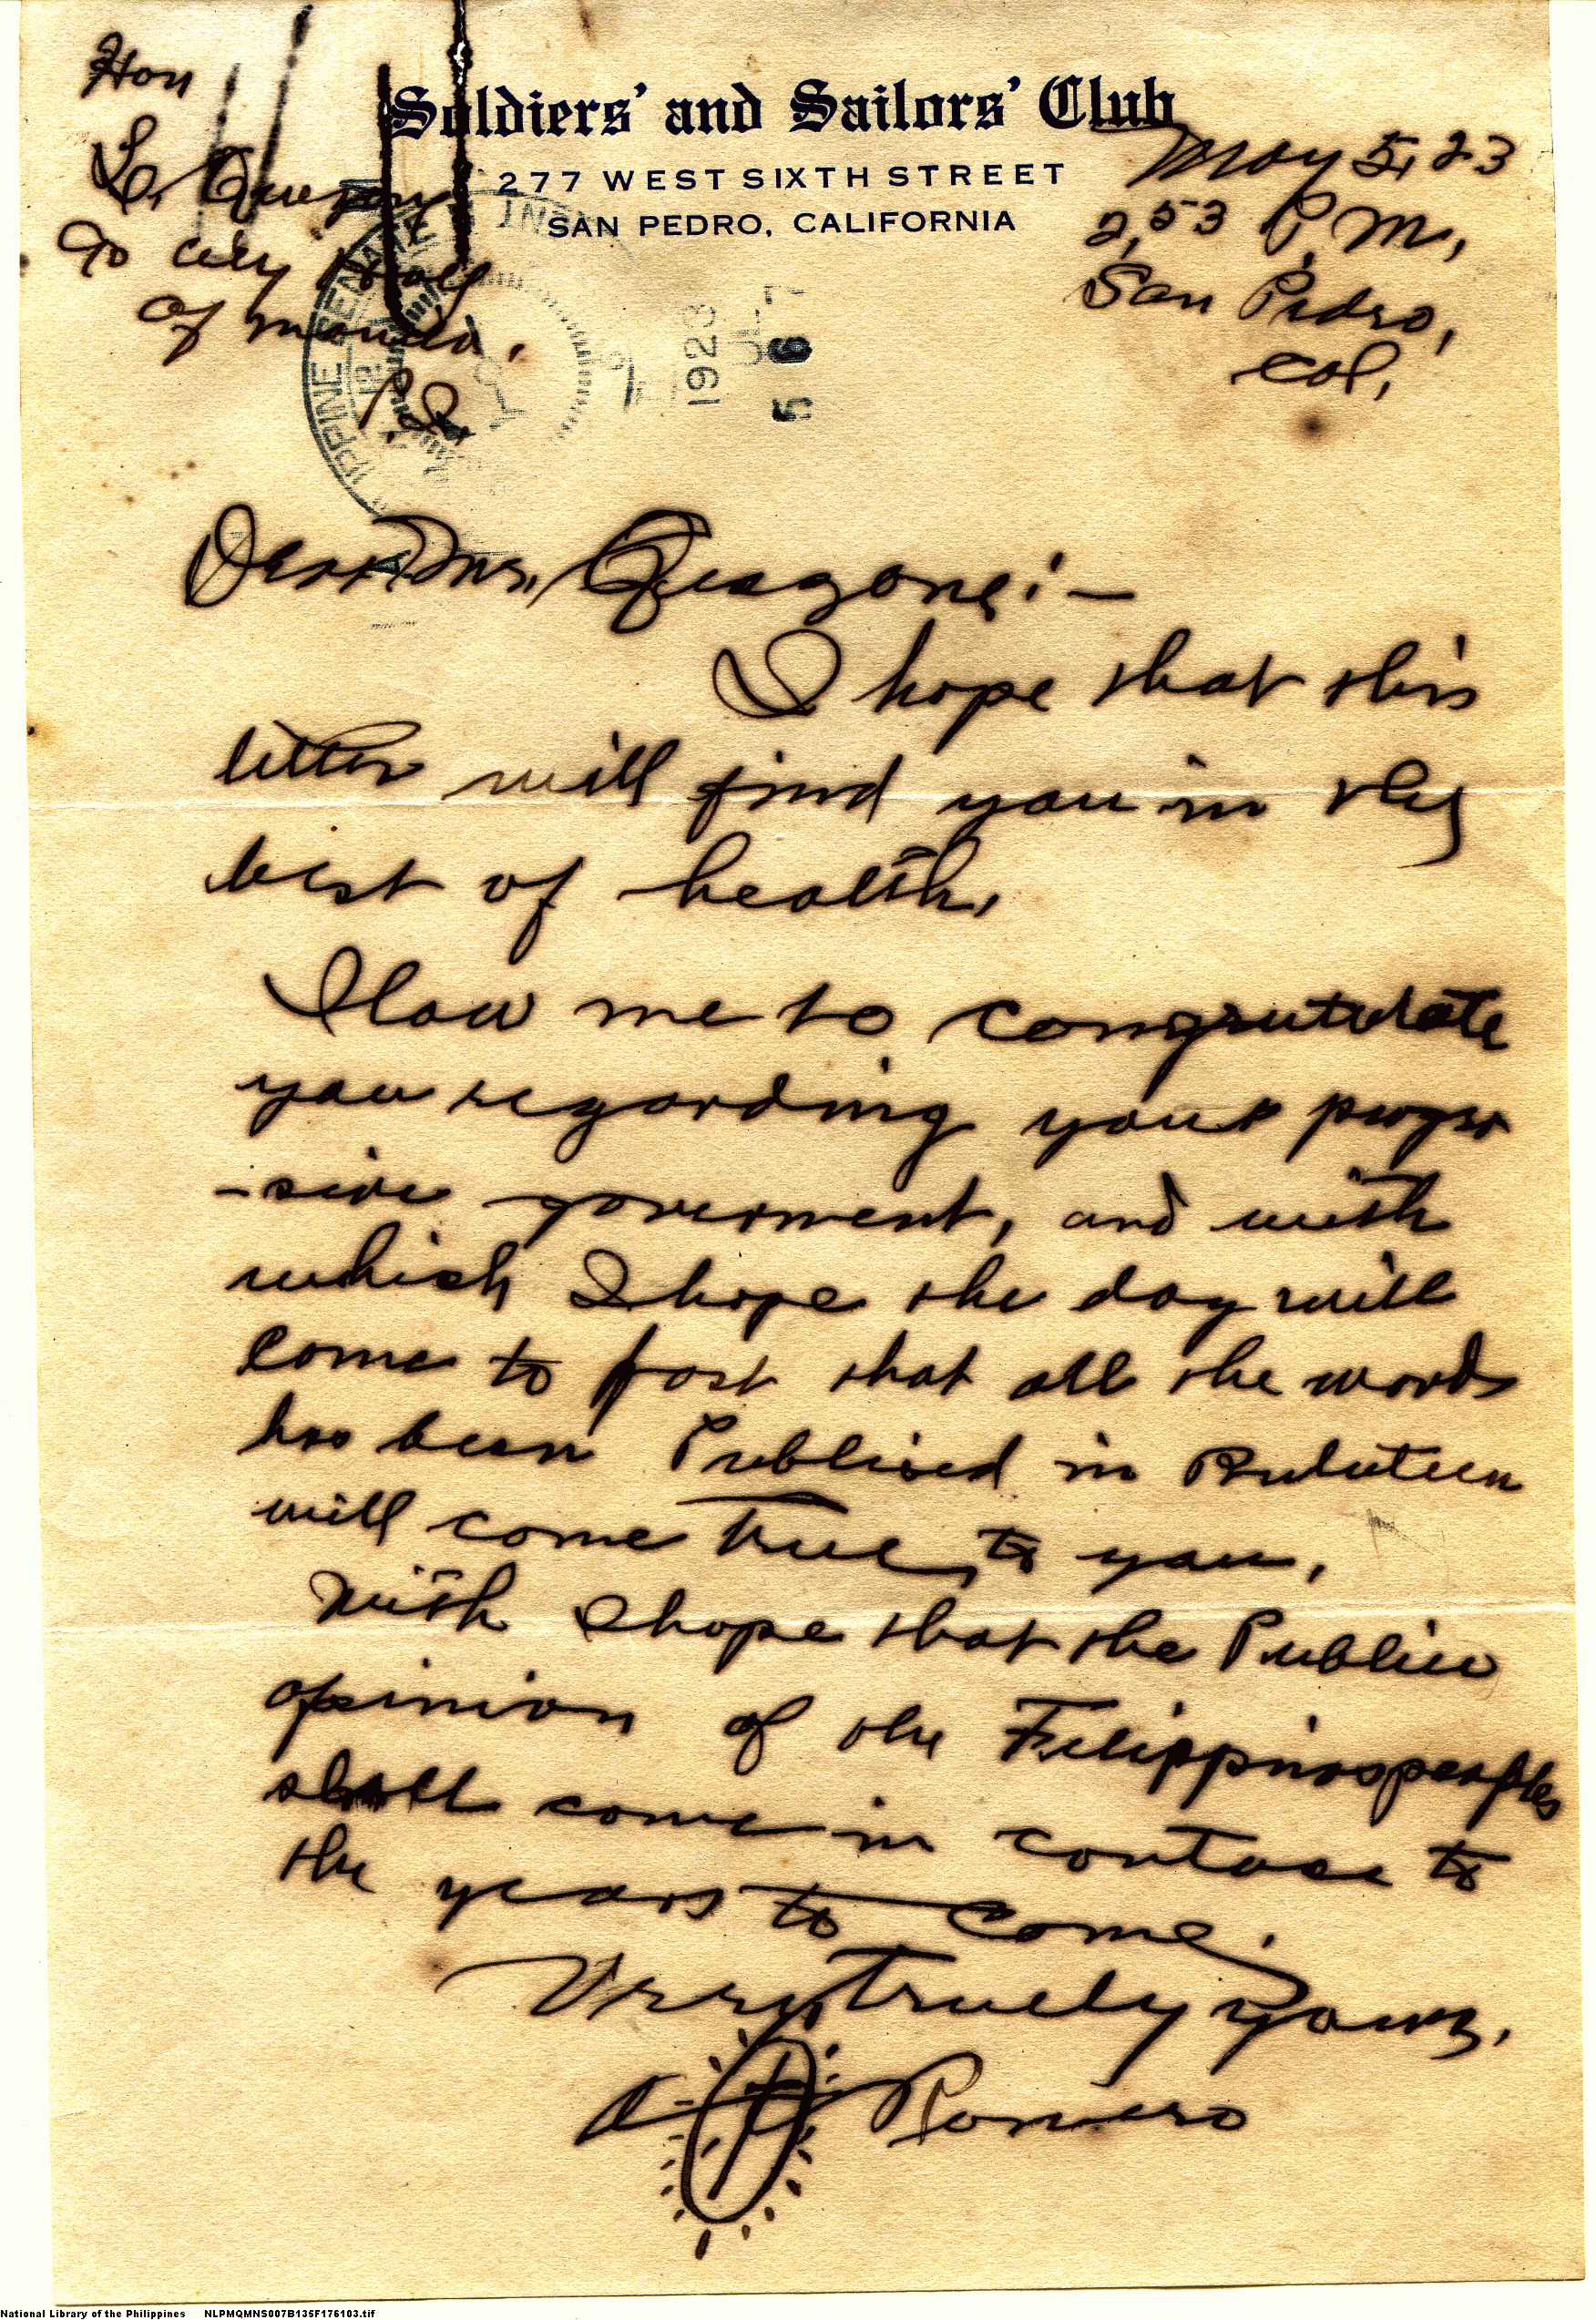 Soldiers' and Sailors' Club
277 WEST SIXTH STREET
SAN PEDRO, CALIFORNIA
Hon
L. Quezon
To City Hall
of Manila.
P.I.
May 5, 23
2,53 P.M.,
San Pedro,
Cal,
PPINE SENATE
1923
5 6
Dear Mr. Quezone:—
I hope that this
letter will find you in the
best of health.
Alow me to congratulate
you regarding your progre
-sive goverment, and with
which I hope the day will
come to past that all the words
has been Publised in
will come true, to you,
With I hope that the Public
opinion of the Filippinos peoples
shall come in contace to
the years to come.
Very truely yours,
Romero
National Library of the Philippines NLPMQMNS007B135F176103.tif